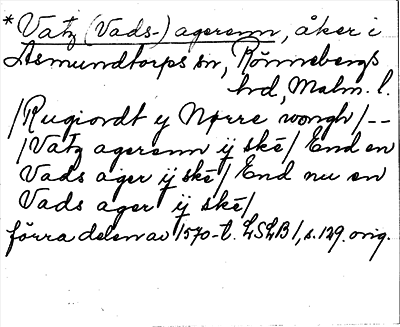 *Vatz (Vads-) agerenn, åker i
Asmundtorps sn, Rönnebergs
hd, Malm. l.
/Rugiordt y Nørre wongh/--
/Vatz agerenn ij ské/ End en
Vads ager ij ské/ End nu en
Vads ager ij ské/
förra delen av 1570-t. LSLB 1, s. 129. orig.